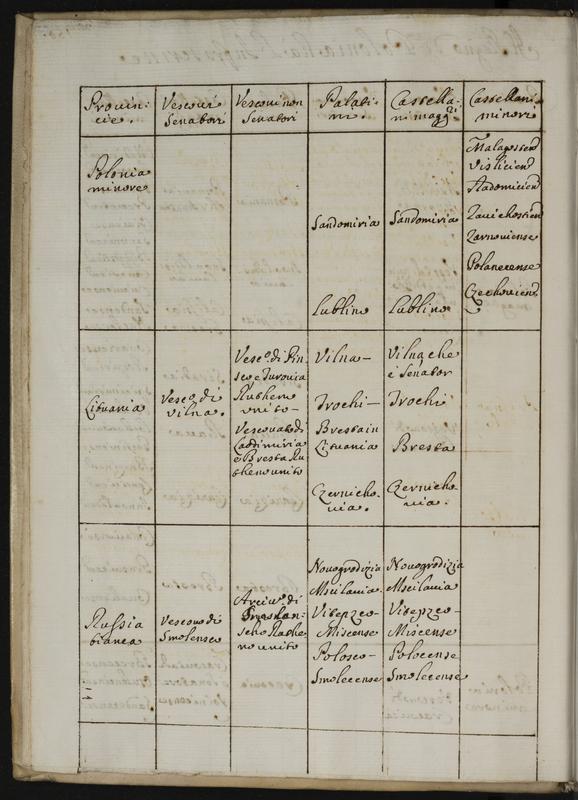 Provin:
cie.
Vescovi
Senatori
Vescovi non
Senatori
Palati-
ni.
Castella:
ni magg.ri
Castellani
minori
Polonia
minore
Sandomiria
Lublino
Sandomiria
Lublino
Malagosten
Visliciens
Radomicien
Zavichostien
Zarnoviense
Polanecense
Czechoviens
Lituania
Vesc.o di
Vilna.
Vesc.o di Pin-
sco e Turovia
Ruthen
unito-
Vescovato di
Vladimiria
e Bresta Ru
theno unito
Vilna-
Trochi-
Bresta in
Lituania
Czernicho-
via.
Vilna che
è Senator
Trochi
Bresta
Czernicho
via.
Russia
bianca
Vescovo di
Smolensco
Arciv.o di
Smolen:
scho Ruthe
no unito
Novogrodizia
Mscilavia
Vitepzco-
Miscense
Polosco-
Smolecense
Novogrodizia
Mscilavia
Vitepzco-
Miscense
Polocense
Smolecense